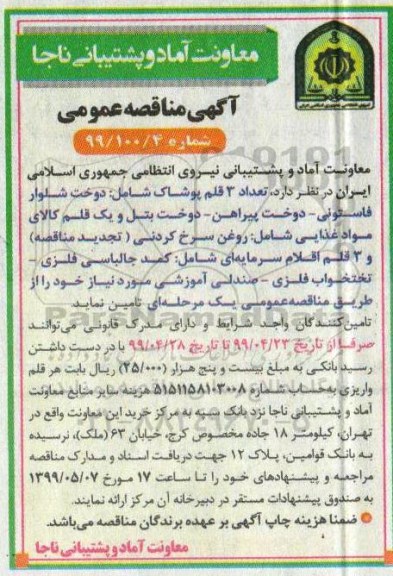 معاونت آماد و پشتیبانی ناجا
آگهی مناقصه عمومی
شماره ۹۹/۱۰۰/۴
معاونت آماد و پشتیبانی نیروی انتظامی جمهوری اسلامی
ایران در نظر دارد، تعداد ۳ قلم پوشاک شامل: دوخت شلوار
فاستونی - دوخت پیراهن - دوخت بتل و یک قلم کالای
مواد غذایی شامل: روغن سرخ کردنی ( تجدید مناقصه)
و ۳ قلم اقلام سرمایه‌ای شامل: کمد جالباسی فلزی -
تختخواب فلزی - صندلی آموزشی مورد نیاز خود را از
طریق مناقصه عمومی یک مرحله‌ای تامین نماید.
تامین‌کنندگان واجد شرایط و دارای مدرک قانونی می‌توانند
صرفا از تاریخ ۹۹/۰۴/۲۳ تا تاریخ ۹۹/۰۴/۲۸ با در دست داشتن
رسید بانکی به مبلغ بیست و پنج هزار (۲۵/۰۰۰) ریال بابت هر قلم
واریزی به حساب شماره ۵۱۵۱۱۵۸۱۰۳۰۰۸ هزینه سایر منابع معاونت
آماد و پشتیبانی ناجا نزد بانک سپه به مرکز خرید این معاونت واقع در
تهران، کیلومتر ۱۸ جاده مخصوص کرج، خیابان ۶۳ (ملک)، نرسیده
به بانک قوامین، پلاک ۱۲ جهت دریافت اسناد و مدارک مناقصه
مراجعه و پیشنهادهای خود را تا ساعت ۱۷ مورخ ۱۳۹۹/۰۵/۰۷
به صندوق پیشنهادات مستقر در دبیرخانه آن مرکز ارائه نمایند.
ضمنا هزینه چاپ آگهی بر عهده برندگان مناقصه می‌باشد.
معاونت آماد و پشتیبانی ناجا